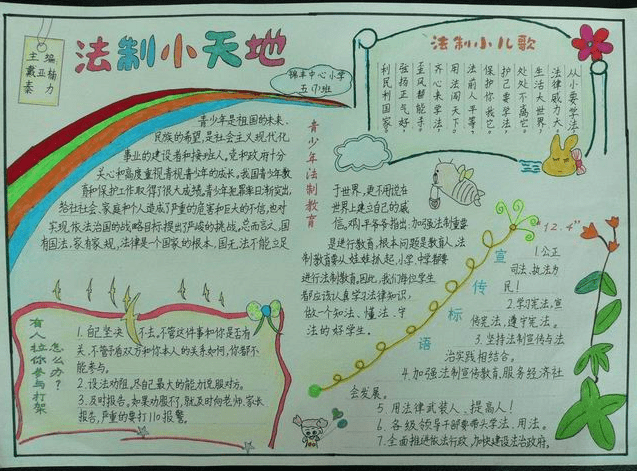 法制小天地
主编
戴亚楠
秦力
锦丰中心小学
五(1)班
法制小儿歌
从小要学法
法律威力大。
生活大世界,
处处不离它。
护己要学法,
保护你我它。
法前人人平等,
用法闯天下。
齐心来学法,
歪风帮能手。
强扬正气好,
利民利国家。
青少年法制教育
青少年是祖国的未来,
民族的希望,是社会主义现代化
事业的建设者和接班人,党和政府十分
关心和高度重视青少年的成长,我国青少年教
育和保护工作取得了很大成绩。青少年犯罪率日渐突出,
给社社会、家庭和个人造成了严重的危害和巨大的不信,也对
实现依法治国的战略目标提出了严峻的挑战。总而言之,国
有国法,家有家规,法律是个国家的根本,国无法不能立足
于世界,更不用说在
世界上建立自己的威
信。邓小平爷爷指出:加强法制重要
是进行教育,根本问题是教育人,法
制教育要从娃娃抓起,小学、中学都要
进行法制教育。因此,我们每位学生
都应该认真学习法律知识,
做一个知法、懂法、守
法的好学生。
有人拉你参与打架
怎么办?
1.自己坚决不去,不管这件事和你是否有
关,不管争有双方和你本人的关系如何,你都不
能参与。
2.设法劝阻,尽自己最大的能力说服对方。
3.及时报告。如果劝服不了,就及时向老师、家长
报告,严重的要打110报警。
宣传标语
"12.4"
1.公正
司法、执法为
民!
2.学习宪法,宣
传宪法,遵守宪法。
3.坚持法制宣传与法
治实践相结合。
4.加强法制宣传教育,服务经济社
会发展。
5.用法律武装人、提高人!
6.各级领导干部要带头学法、用法。
7.全面推进依法行政,加快建设法治政府。